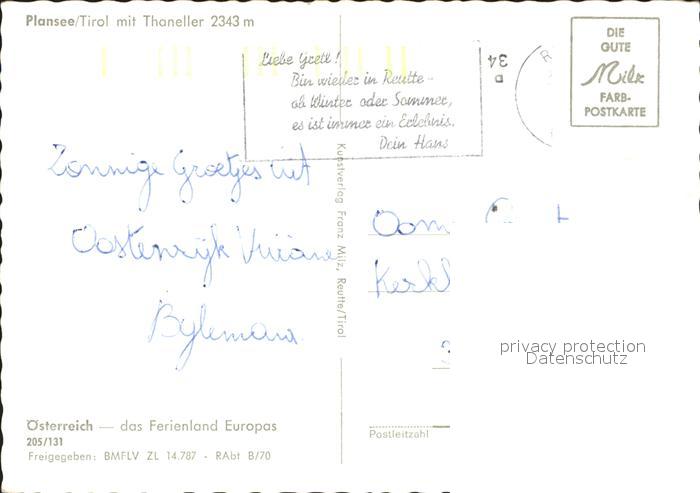 Plansee/Tirol mit Thaneller 2343 m
Liebe Gretl!
Bin wieder in Reutte -
ob Winter oder Sommer,
es ist immer ein Erlebnis.
Dein Hans
34
DIE
GUTE
Milz
FARB-
POSTKARTE
Zonnige Groetjes uit
Oostenrijk
Kunstverlag Franz Milz, Reutte/Tirol
Oom
privacy protection
Datenschutz
Österreich — das Ferienland Europas
205/131
Freigegeben: BMFLV ZL 14.787 - RAbt B/70
Postleitzahl